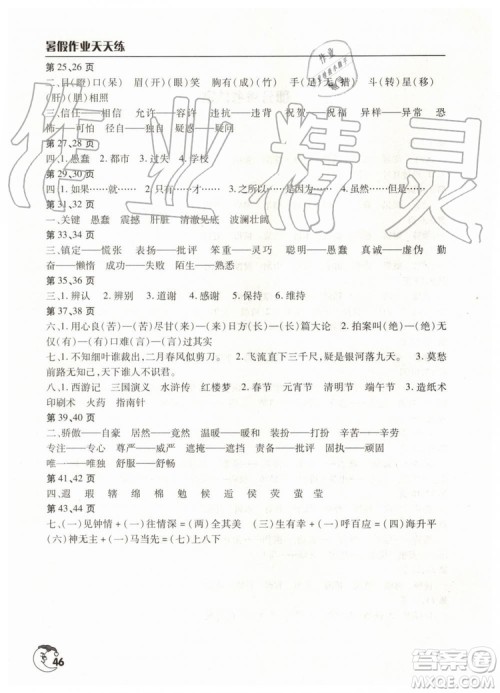 暑假作业天天练
第25、26页
二、目(瞪)口(呆)　眉(开)(眼)笑　胸有(成)(竹)　手(足)无(措)　斗(转)星(移)
(肝)(胆)相照
三、信任——相信　允许——容许　违抗——违背　祝贺——祝福　异样——异常　恐
怖——可怕　径自——独自　疑惑——疑问
第27、28页
四、1. 愚蠢　2. 都市　3. 过失　4. 学校
第29、30页
四、1. 如果……就……　2. 不但……而且……　3. 尽管……还是……　4. 虽然……但是……
第31、32页
一、关键　愚蠢　震撼　肝脏　清澈见底　波澜壮阔
第33、34页
三、镇定——慌张　表扬——批评　笨重——灵巧　聪明——愚蠢　真诚——虚伪　勤
奋——懒惰　成功——失败　陌生——熟悉
第35、36页
三、1. 辨认　2. 辨别　3. 道谢　4. 感谢　5. 保持　6. 维持
第37、38页
六、1. 用心良(苦)(苦)尽甘(来)(来)日方(长)(长)篇大论　2. 拍案叫(绝)(绝)无
仅(有)(有)口难(言)(言)而有(信)(信)口开河
七、1. 不知细叶谁裁出，二月春风似剪刀。　2. 飞流直下三千尺，疑是银河落九天。　3. 莫愁
前路无知己，天下谁人不识君。
八、1. 西游记　三国演义　水浒传　红楼梦　2. 春节　元宵节　清明节　端午节　3. 造纸术
印刷术　火药　指南针
第39、40页
二、骄傲——自豪　居然——竟然　温暖——暖和　判断——推断　辛苦——艰苦
专注——专心　尊严——威严　遮掩——遮挡　宽敞——宽阔　指责——批评
唯一——唯独　舒服——舒畅
第41、42页
四、遐　瑕　辖　绵　棉　勉　候　逅　侯　荧　萤　莹
第43、44页
七、(一)见钟情+(一)往情深=(两)全其美　(三)生有幸+(一)呼百应=(四)海升平
(六)神无主+(一)马当先=(七)上八下
46
作业精灵
答案圈
MXQE.COM